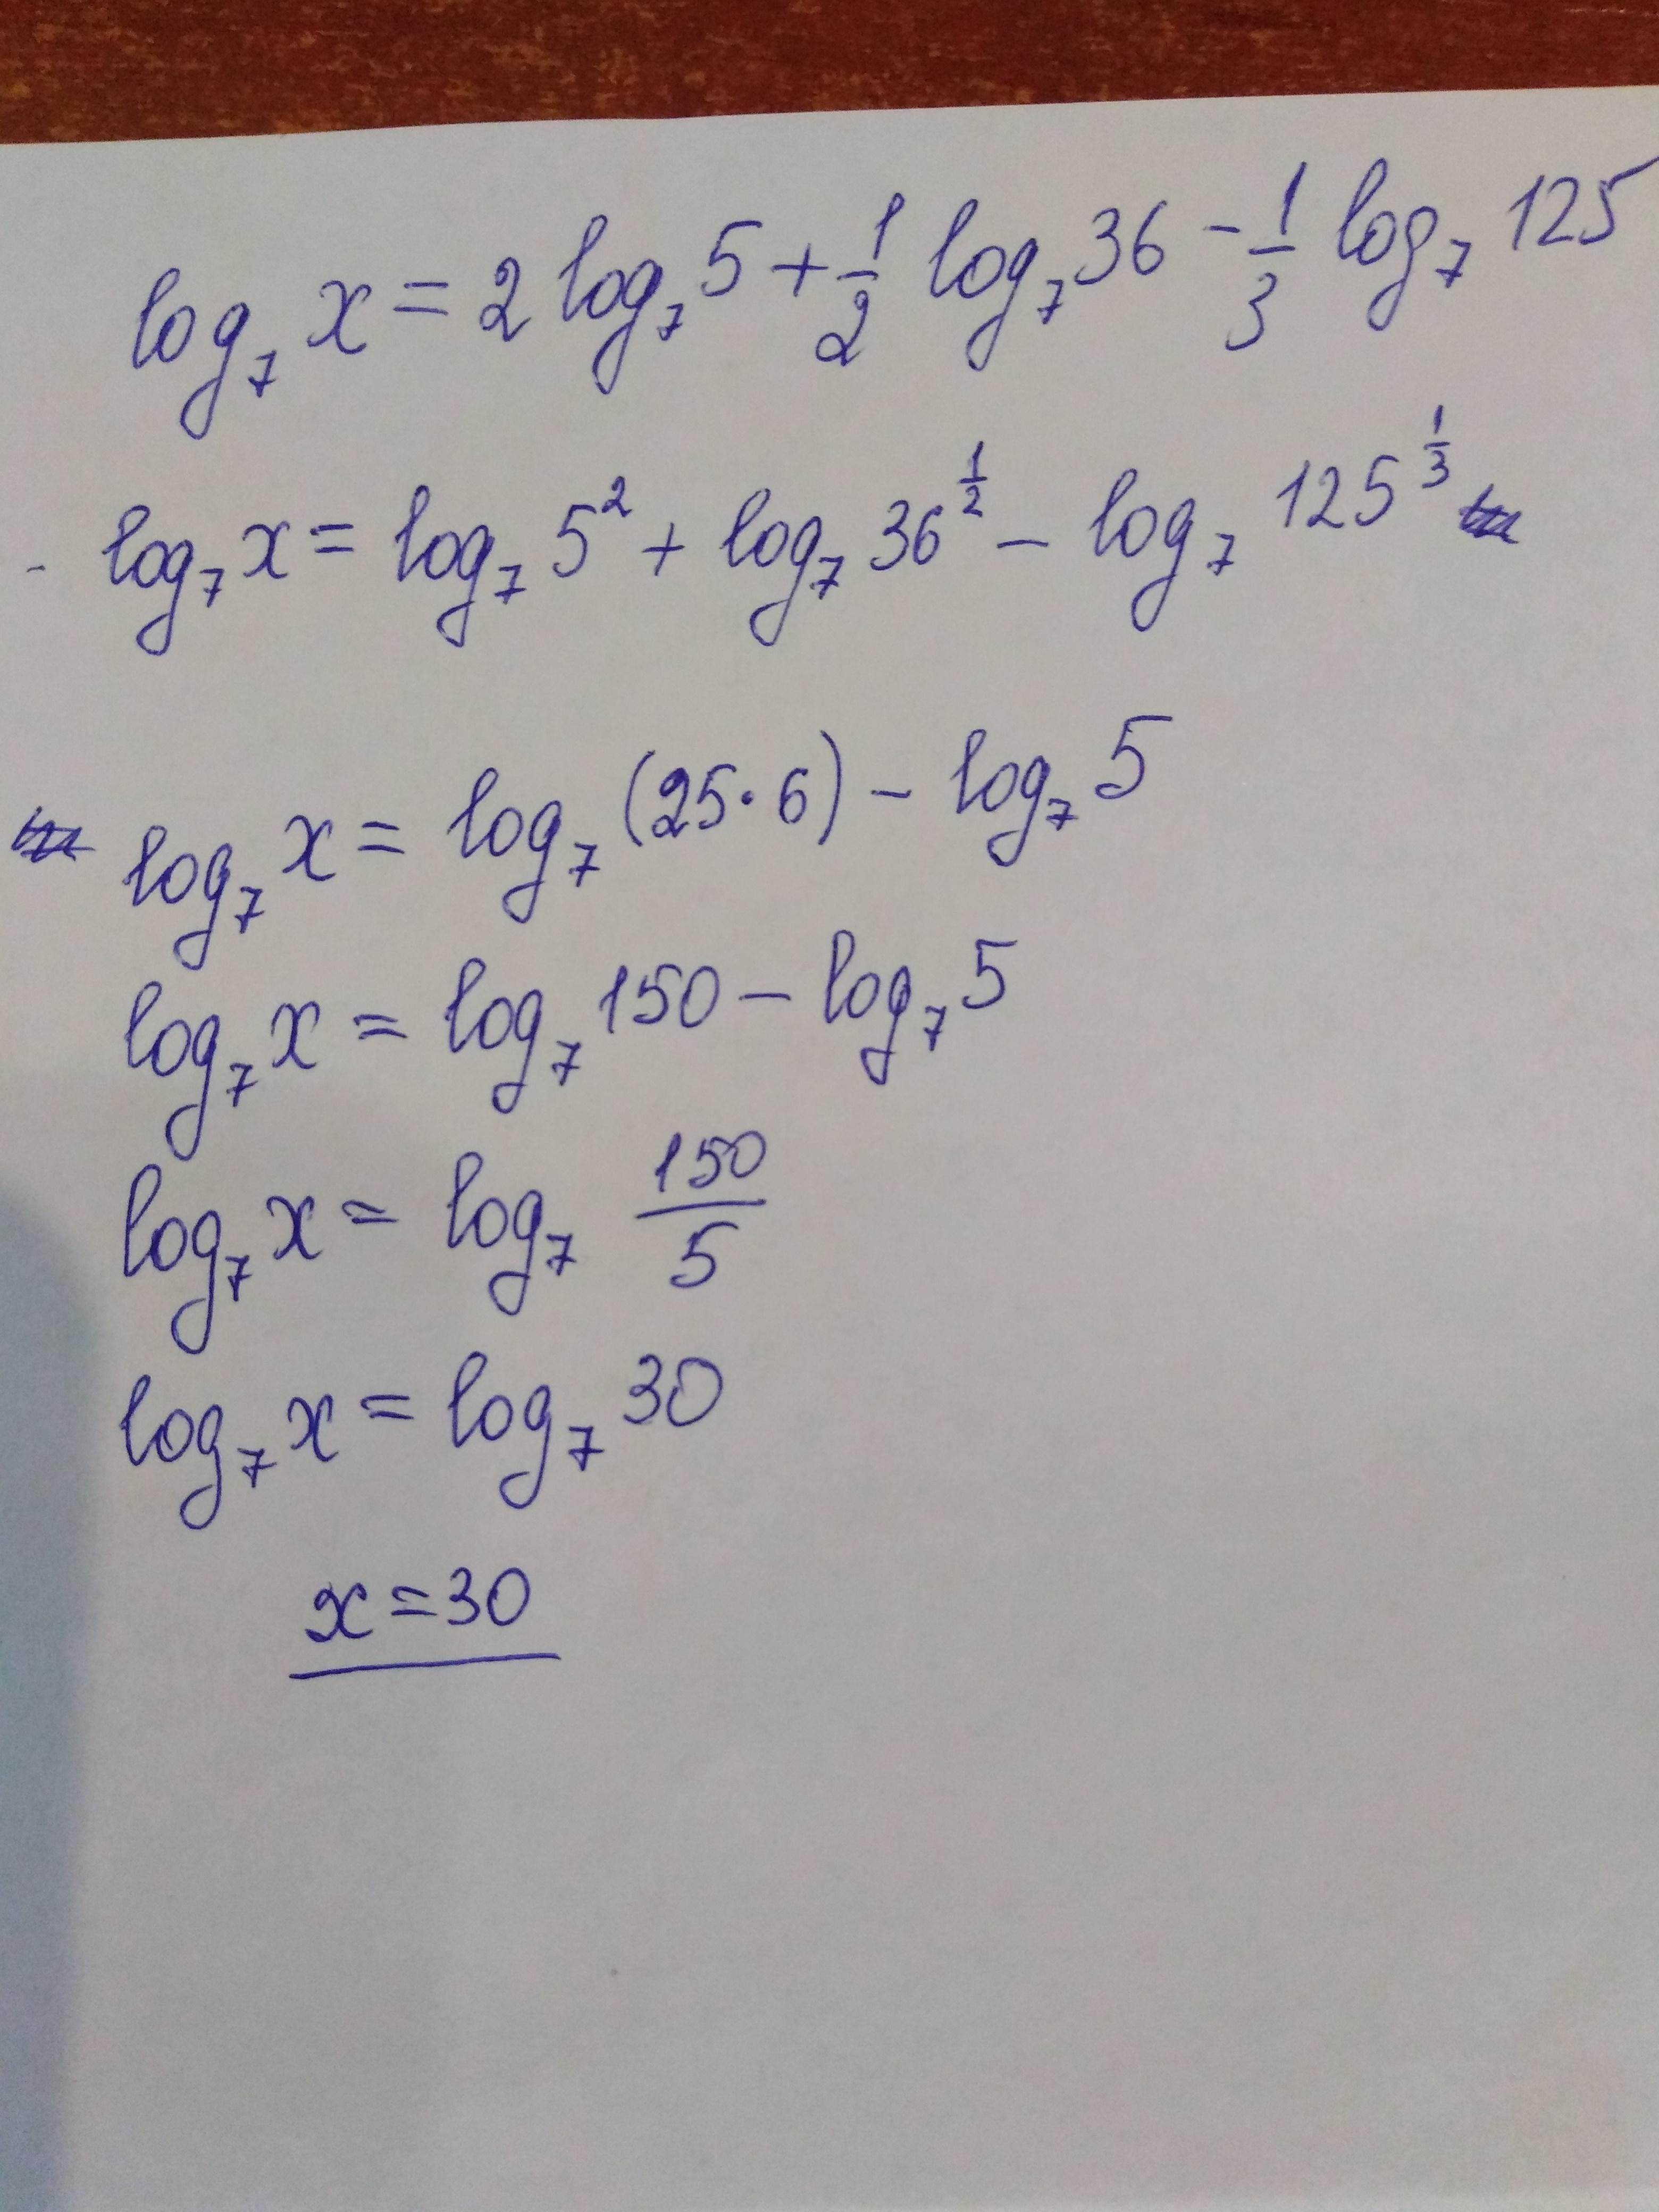 log₇ x = 2 log₇ 5 + 1/2 log₇ 36 - 1/3 log₇ 125
log₇ x = log₇ 5² + log₇ 36^(1/2) - log₇ 125^(1/3)
log₇ x = log₇ (25 · 6) - log₇ 5
log₇ x = log₇ 150 - log₇ 5
log₇ x = log₇ 150/5
log₇ x = log₇ 30
x = 30